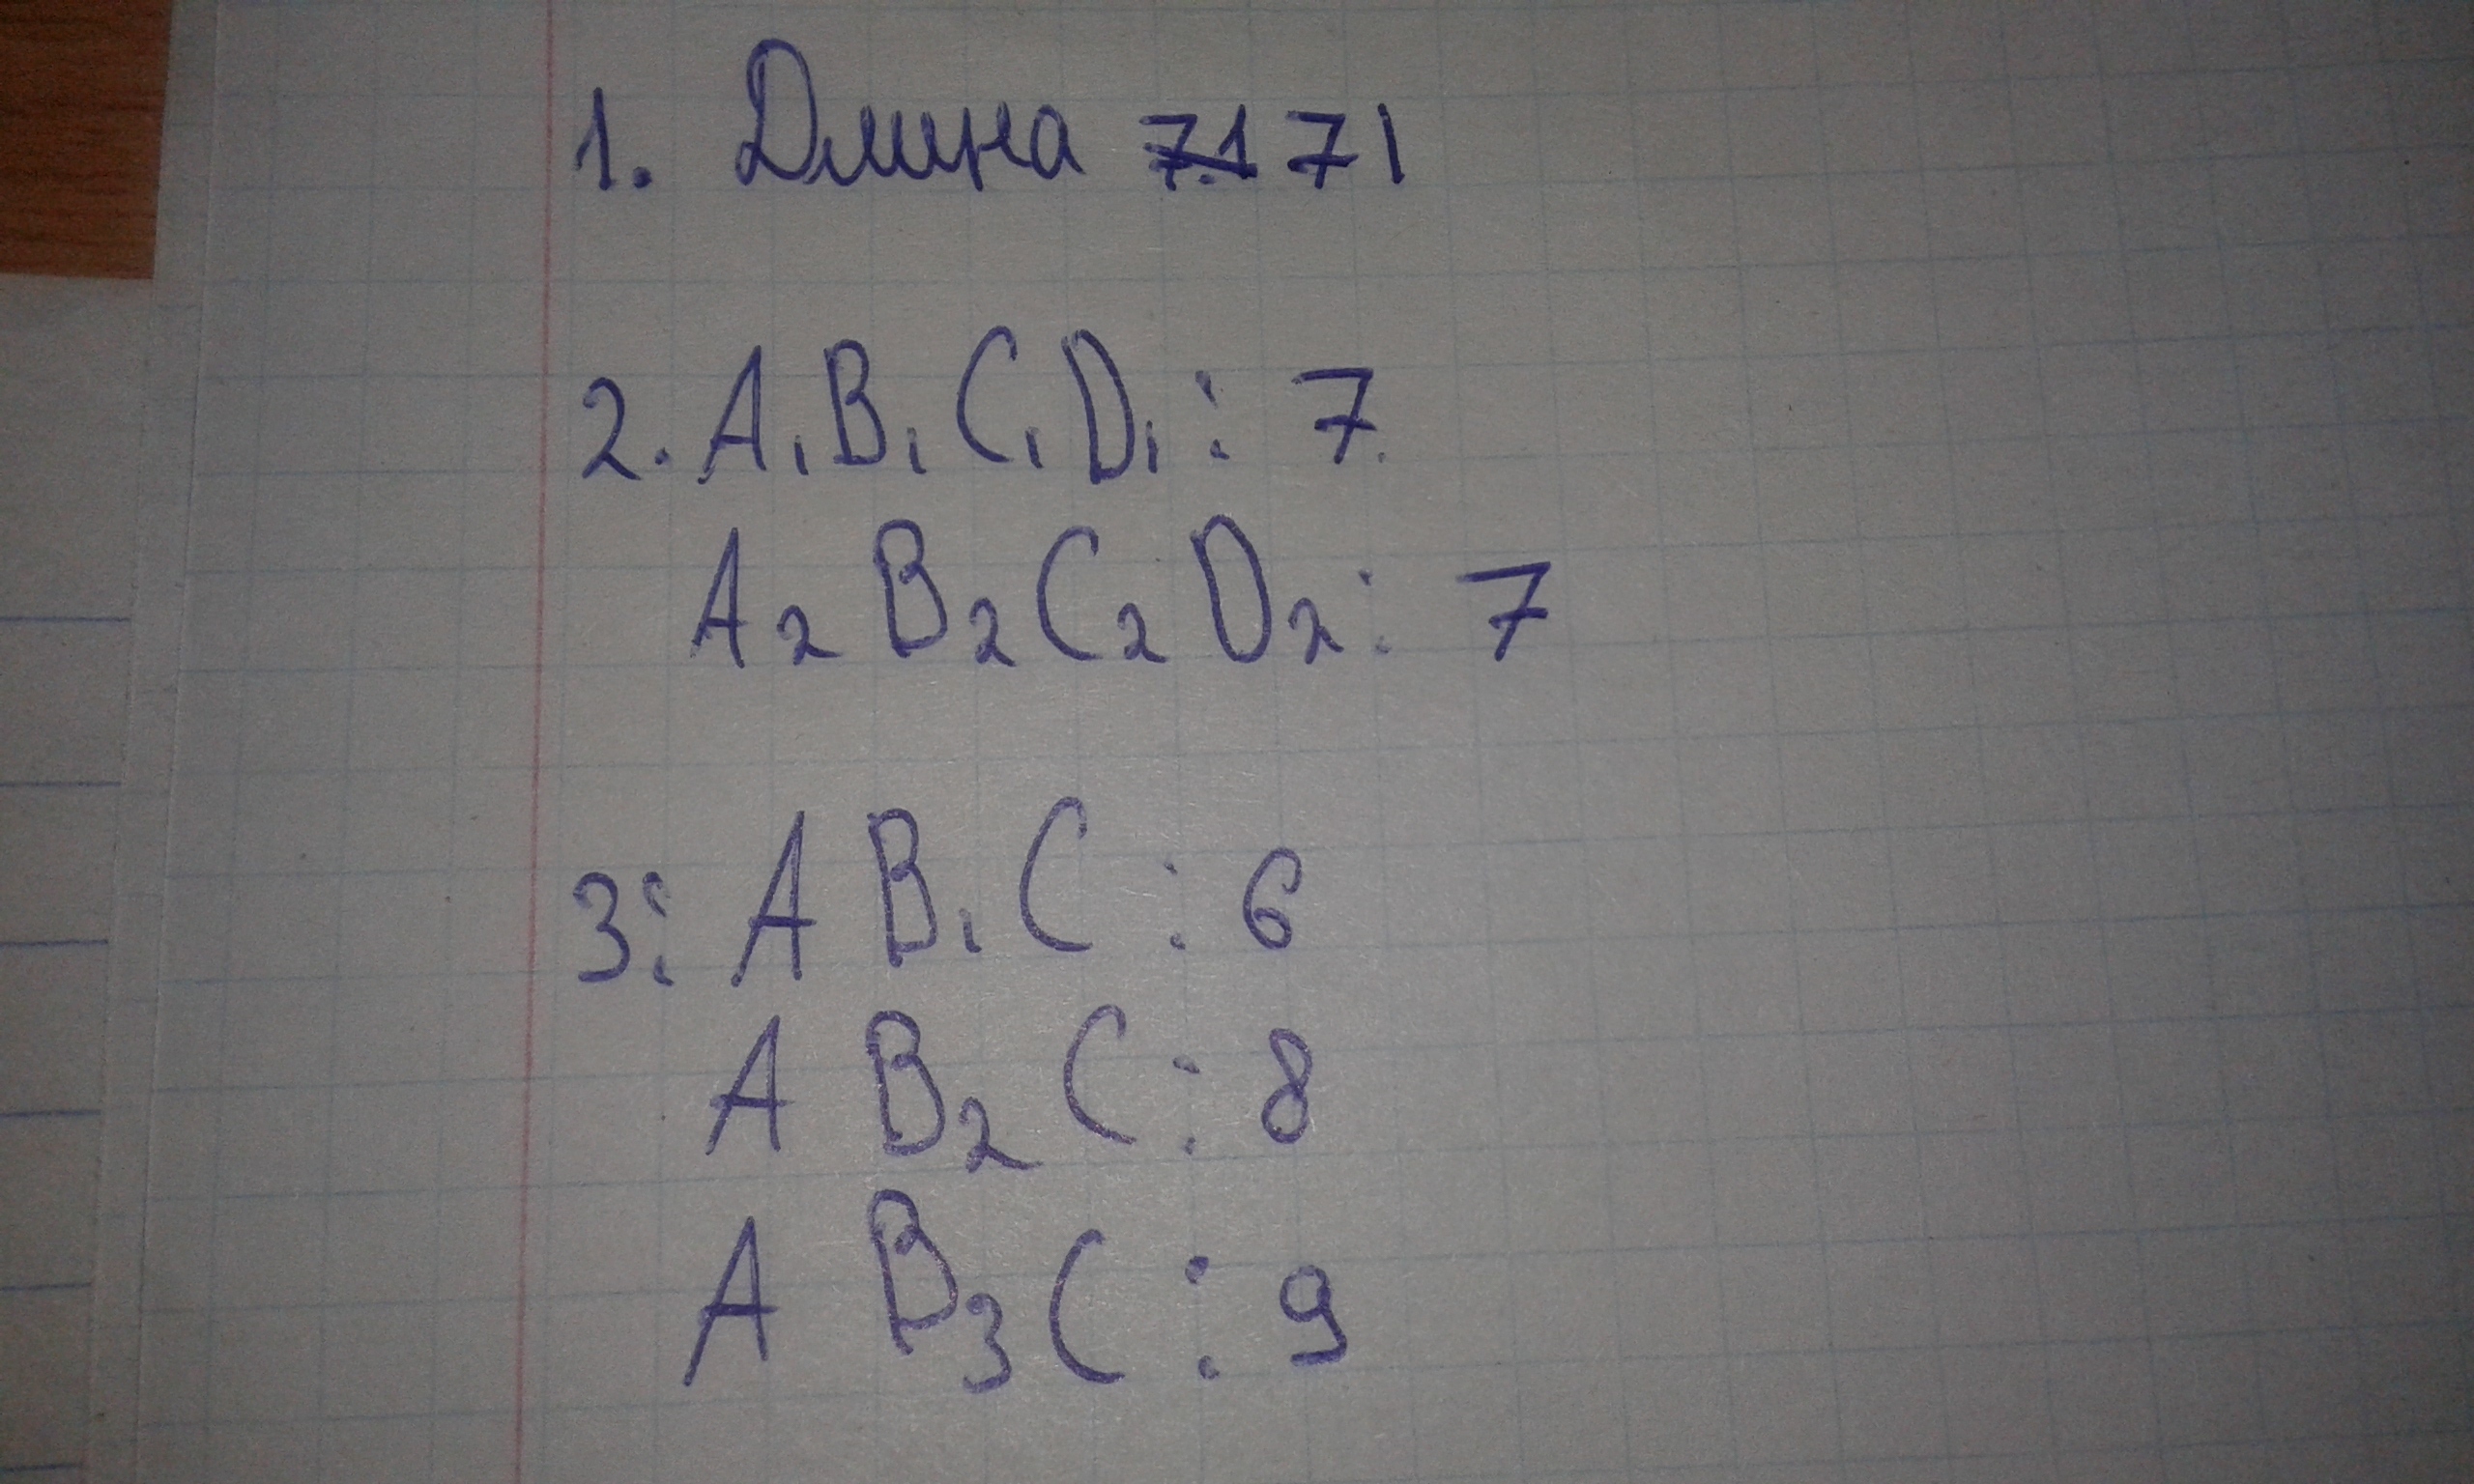 1. Длина 7.1 71
2. A₁B₁C₁D₁: 7.
A₂B₂C₂D₂: 7
3: AB₁C: 6
AB₂C: 8
AB₃C: 9